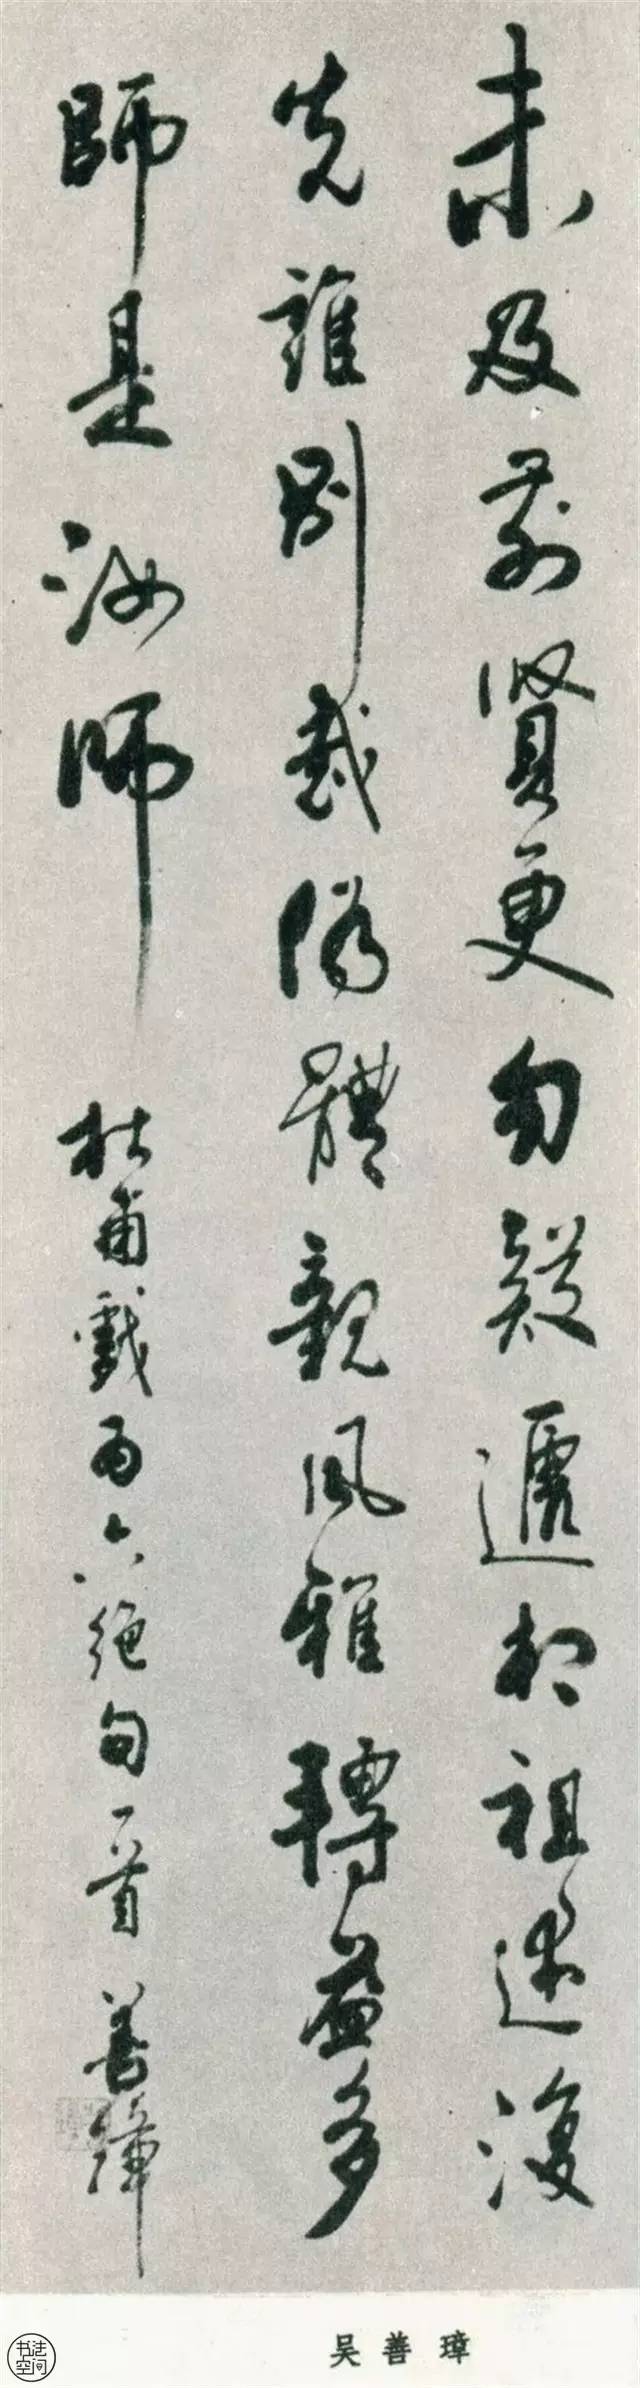 未及前賢更勿疑遞相祖述復
先誰別裁偽體親風雅轉益多
師是汝師 杜甫戲為六絕句一首 善璋
吴善璋
书法空间